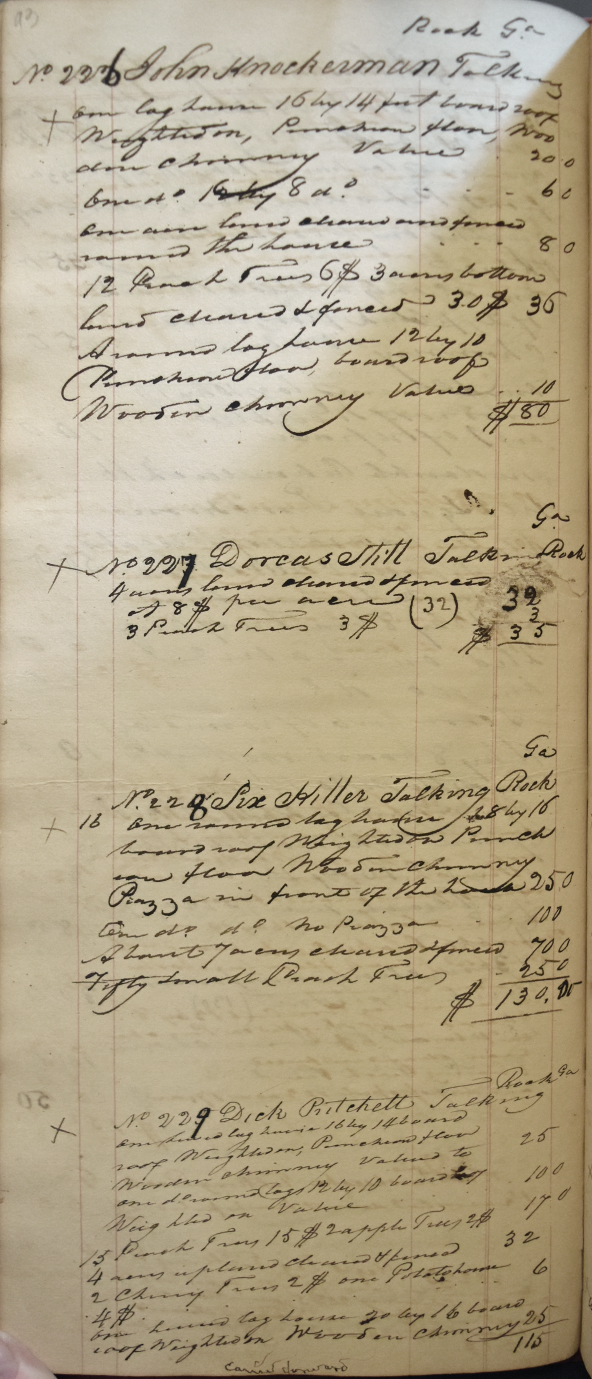 Rock Ga
No. 226 John Knockerman Talking
One log house 16 by 14 feet board roof
Weighted on, Puncheon floor, Woo
den Chimney Value 20 0
One do 12 by 8 do 6 0
One acre land cleared and fenced
round the house 8 0
12 Peach Trees 6$ 3 acres bottom
land cleared & fenced 30$ 36
A round log house 12 by 10
Puncheon floor, board roof
Wooden chimney Value 10
$ 80
Ga
No. 227 Dorcas Still Talking Rock
4 acres land cleared & fenced
at 8$ per acre (32) 32
3 Peach Trees 3$ 3
$ 35
Ga
No. 228 Six Killer Talking Rock
16 One round log house 18 by 16
board roof Weighted on Punch
eon floor Wooden Chimney
Piazza in front of the house 25 0
One do do No Piazza 10 0
About 7 acres cleared & fenced 70 0
Fifty small Peach Trees 25 0
$ 130.
Rock Ga
No. 229 Dick Pritchett Talking
One hewed log house 16 by 14 board
roof Weighted on, Puncheon floor
Wooden chimney Valued to 25
one do round logs 12 by 10 board
Weighted on Value 10 0
15 Peach Trees 15$ 2 apple Trees 2$ 17 0
4 acres upland cleared & fenced 32
2 Cherry Trees 2$ one Potatoe house
4$ 6
One hewed log house 20 by 16 board
roof Weighted on Wooden Chimney 25
115
carried forward